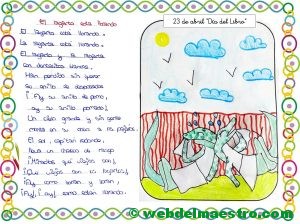 El lagarto está llorando
El lagarto está llorando.
La lagarta está llorando.
El lagarto y la lagarta
con delantalitos blancos.
Han perdido sin querer
su anillo de desposados
¡Ay, su anillito de plomo,
ay, su anillito plomado!
Un cielo grande y sin gente
monta en su globo a los pájaros.
El sol, capitán redondo,
lleva un chaleco de raso.
¡Miradlos qué viejos son!
¡Qué viejos son los lagartos!
¡Ay, cómo lloran y lloran,
¡ay! ¡ay! cómo están llorando!
23 de abril "Día del Libro"
© webdelmaestro.com